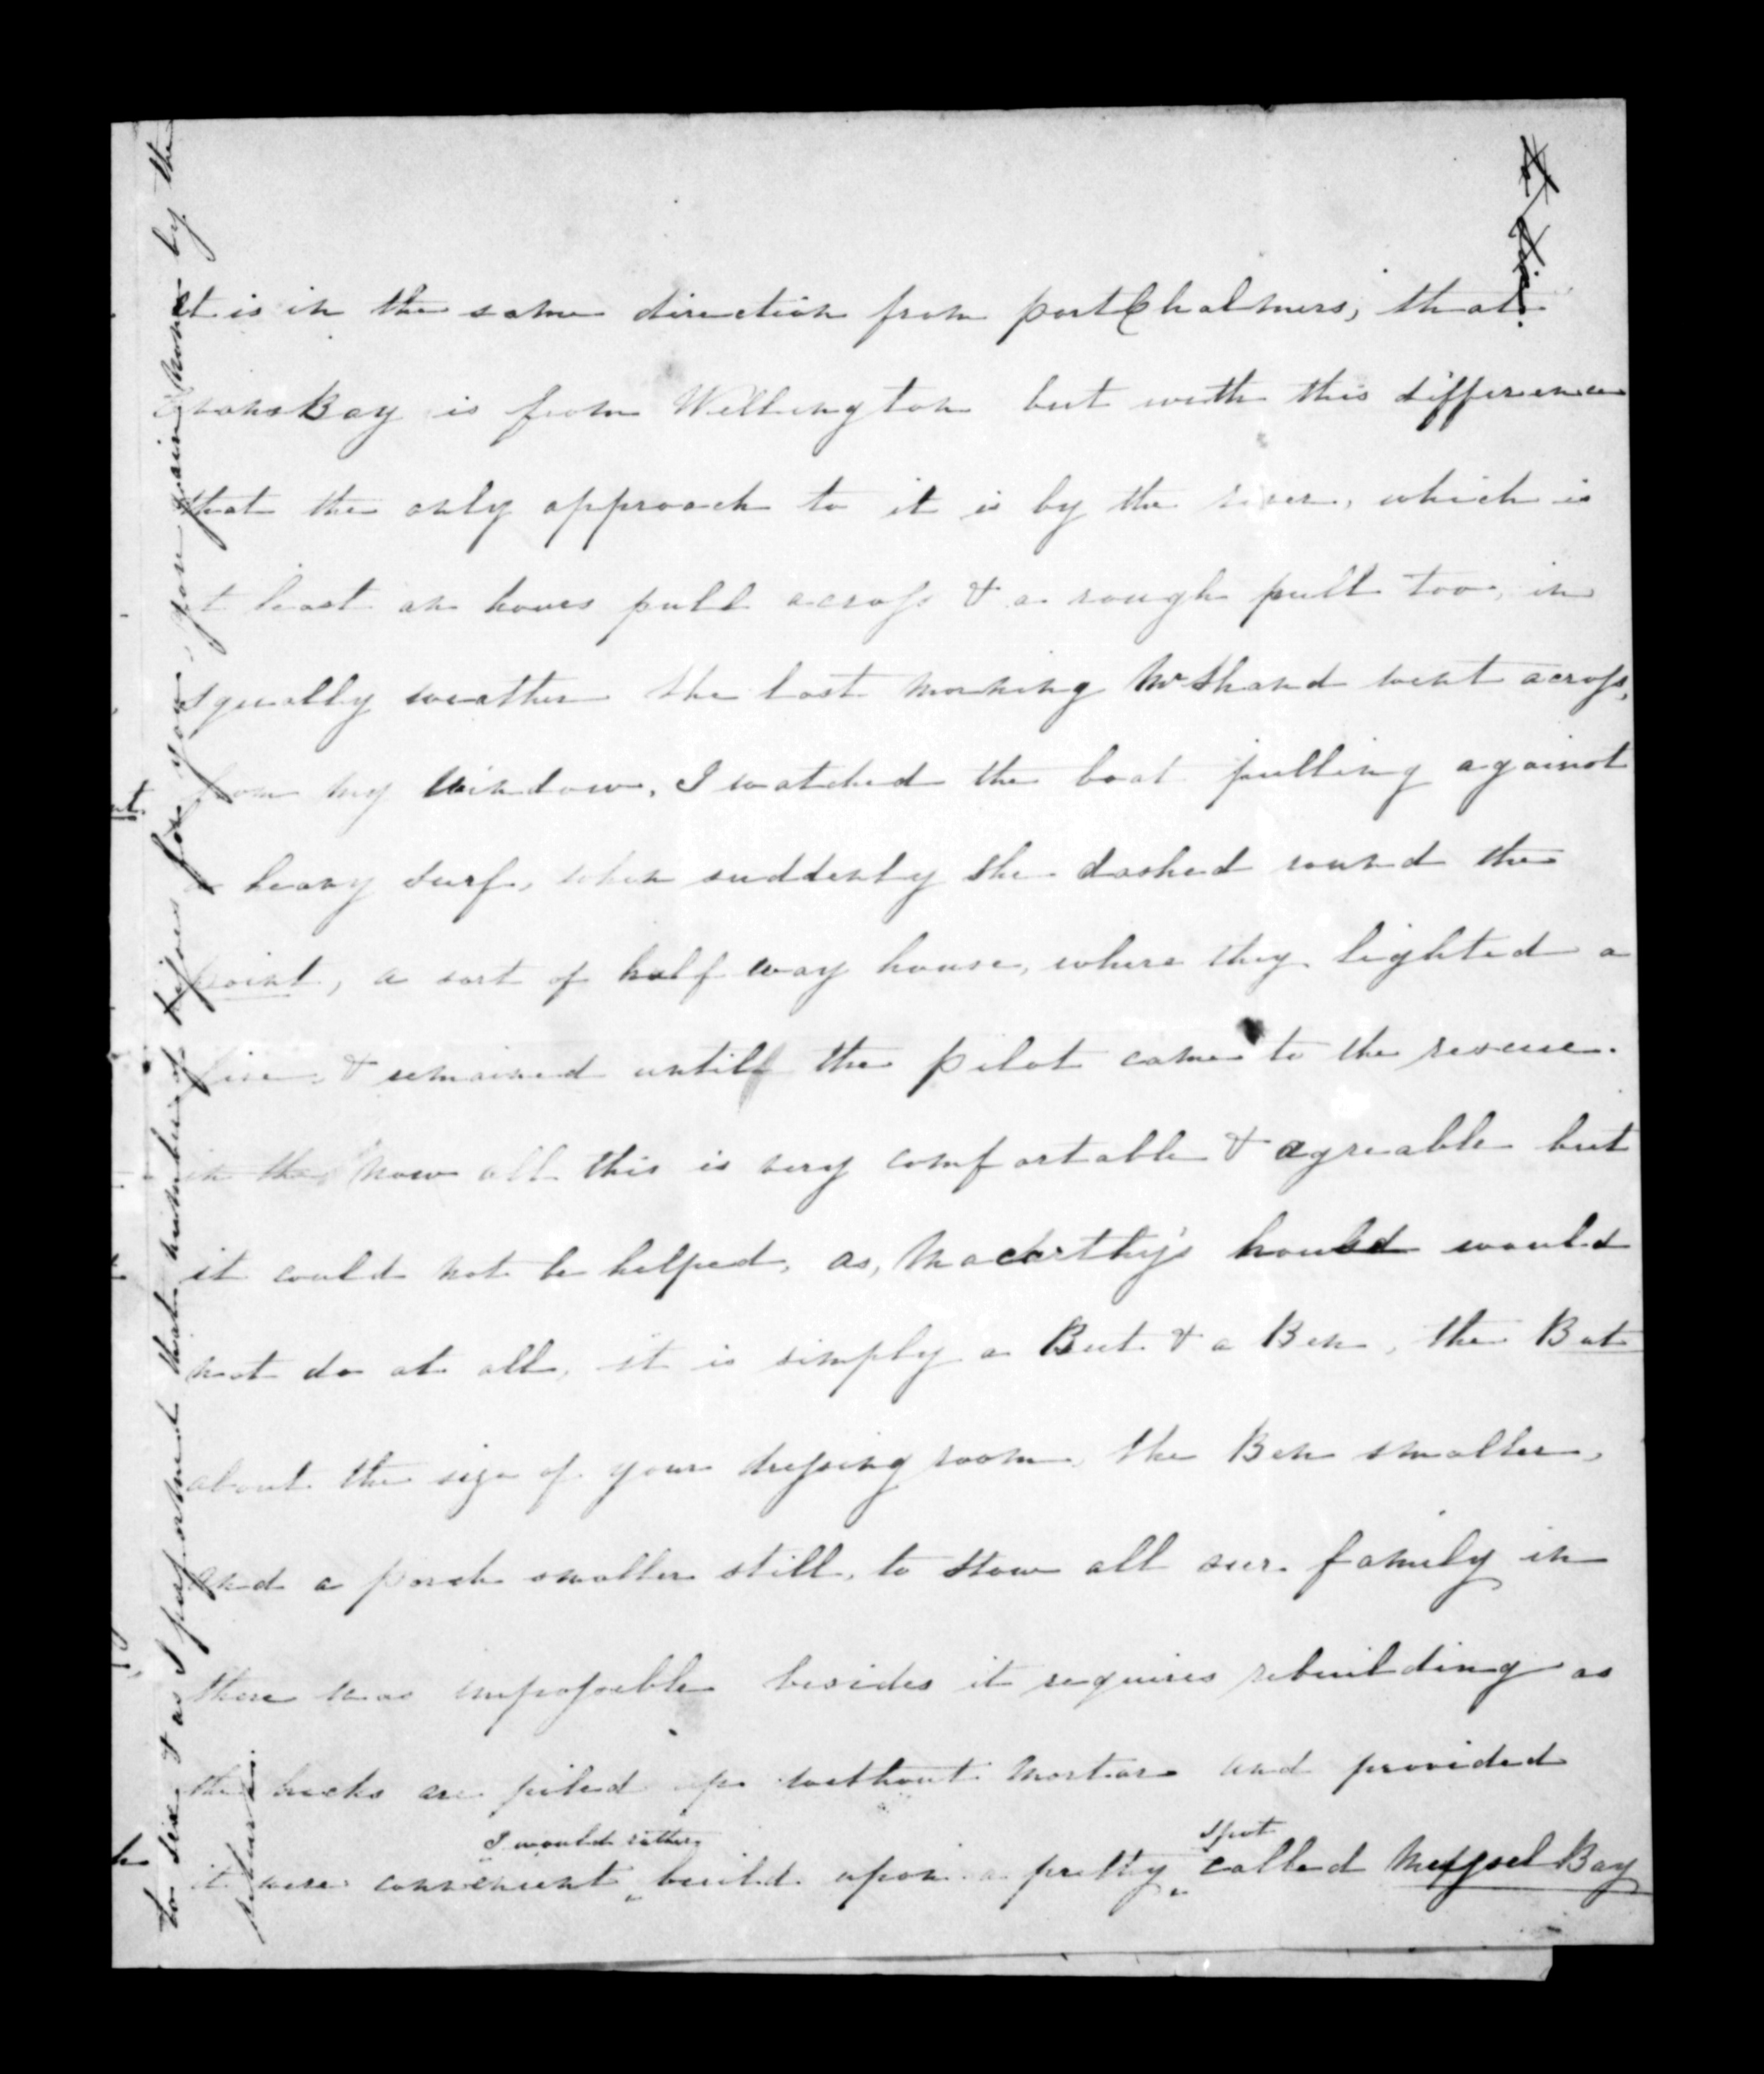 It is in the same direction from port Chalmers, that
Evans Bay is from Wellington but with this difference
that the only approach to it is by the river, which is
at least an hours pull across & a rough pull too, in
squally weather the last morning Mr Shand went across,
from my window, I watched the boat pulling against
a heavy surf, when suddenly she dashed round the
point, a sort of half way house, where they lighted a
fire & remained untill the pilot came to the rescue.
in the now all this is very comfortable & agreable but
it could not be helped, as, Macarthy's would
not do at all, it is simply a But & a Ben, the But
about the size of your dressing room, the Ben smaller,
and a porch smaller still, to stow all our family in
there was impossible besides it requires rebuilding as
the bricks are piled up without mortar and provided
it were convenient I would rather build upon a pretty spot called Mussel Bay
to six, & as I performed that number of times for you, you gain home by the
returns.